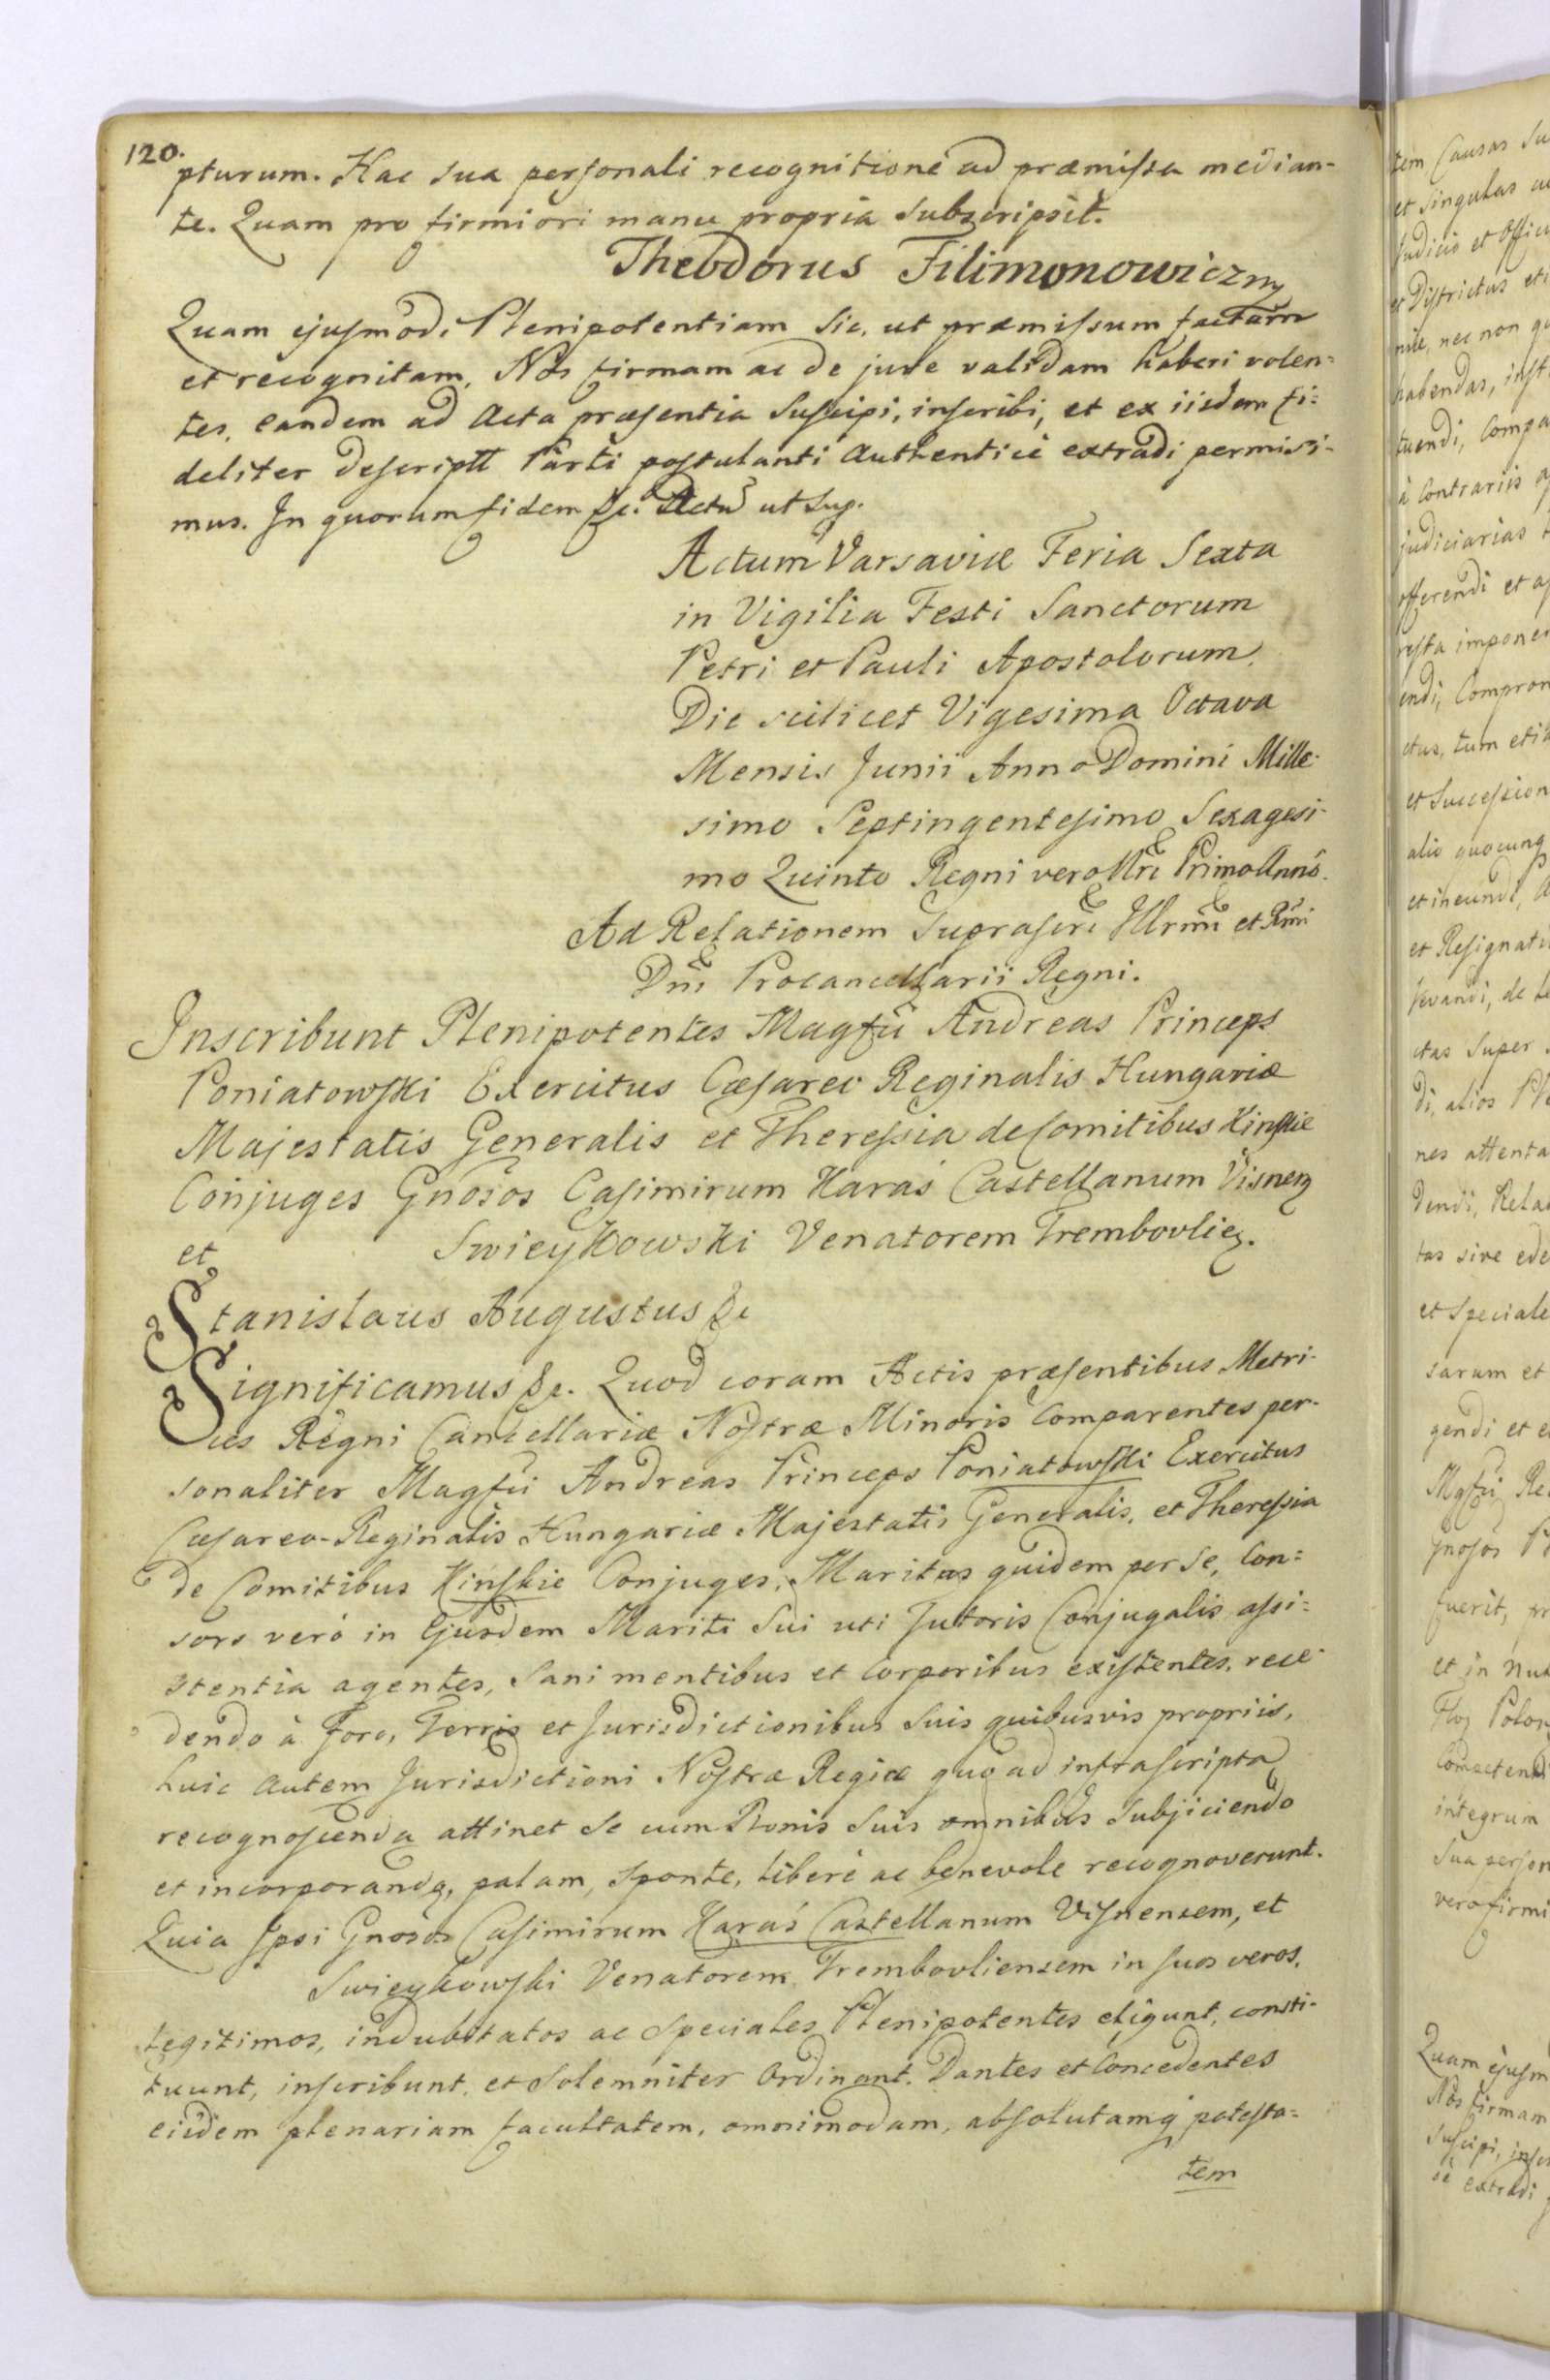 120.
pturum. Hac sua personali recognitione ad præmissa median-
te. Quam pro firmiori manu propria subscripsit.
Theodorus Filimonowicz mp
Quam ejusmodi Plenipotentiam sic, ut præmissum factam
et recognitam, Nos firmam ac de jure validam haberi volen=
tes, eandem ad Acta præsentia suscipi, inscribi, et ex iisdem fi=
deliter descriptt Parti postulanti authentice extradi permisi-
mus. In quorum fidem &c. Actũ ut sup.
Actum Varsaviæ Feria Sexta
in Vigilia Festi Sanctorum
Petri et Pauli Apostolorum,
Die scilicet Vigesima Octava
Mensis Junii Anno Domini Mille-
simo Septingentesimo Sexagesi-
mo Quinto Regni vero Nri Primo Anno.
Ad Relationem suprascri Illrmi et Rmi
Dni Procancellarii Regni.
Inscribunt Plenipotentes Magfci Andreas Princeps
Poniatowski Exercitus Cæsareo Reginalis Hungariæ
Majestatis Generalis et Theressia de Comitibus Kinskie
Conjuges Gnosos Casimirum Karaś Castellanum Visnen
et Swieykowski Venatorem Trembovlien.
Stanislaus Augustus &c
Significamus &c. Quod coram Actis præsentibus Metri-
ces Regni Cancellariæ Nostræ Minoris Comparentes per-
sonaliter Magfci Andreas Princeps Poniatowski Exercitus
Cæsareo-Reginalis Hungariæ Majestatis Generalis, et Theressia
de Comitibus Kinskie Conjuges, Maritus quidem per se, Con=
sors verò in Ejusdem Mariti sui uti Tutoris Conjugalis assi=
stentia agentes, sani mentibus et corporibus existentes, rece-
dendo à Foro, Terris et Jurisdictionibus suis quibusvis propriis,
huic autem Jurisdictioni Nostræ Regiæ quo ad infrascripta
recognoscenda attinet se cum Bonis suis omnibus subjiciendo
et incorporando, palam, sponte, liberè ac benevole recognoverunt.
Quia Ipsi Gnosos Casimirum Karaś Castellanum Visnensem, et
Swieykowski Venatorem Trembovliensem in suos veros,
legitimos, indubitatos ac speciales Plenipotentes eligunt, consti-
tuunt, inscribunt, et solemniter ordinant. Dantes et Concedentes
eisdem plenariam facultatem, omnimodam, absolutamq potesta=
tem